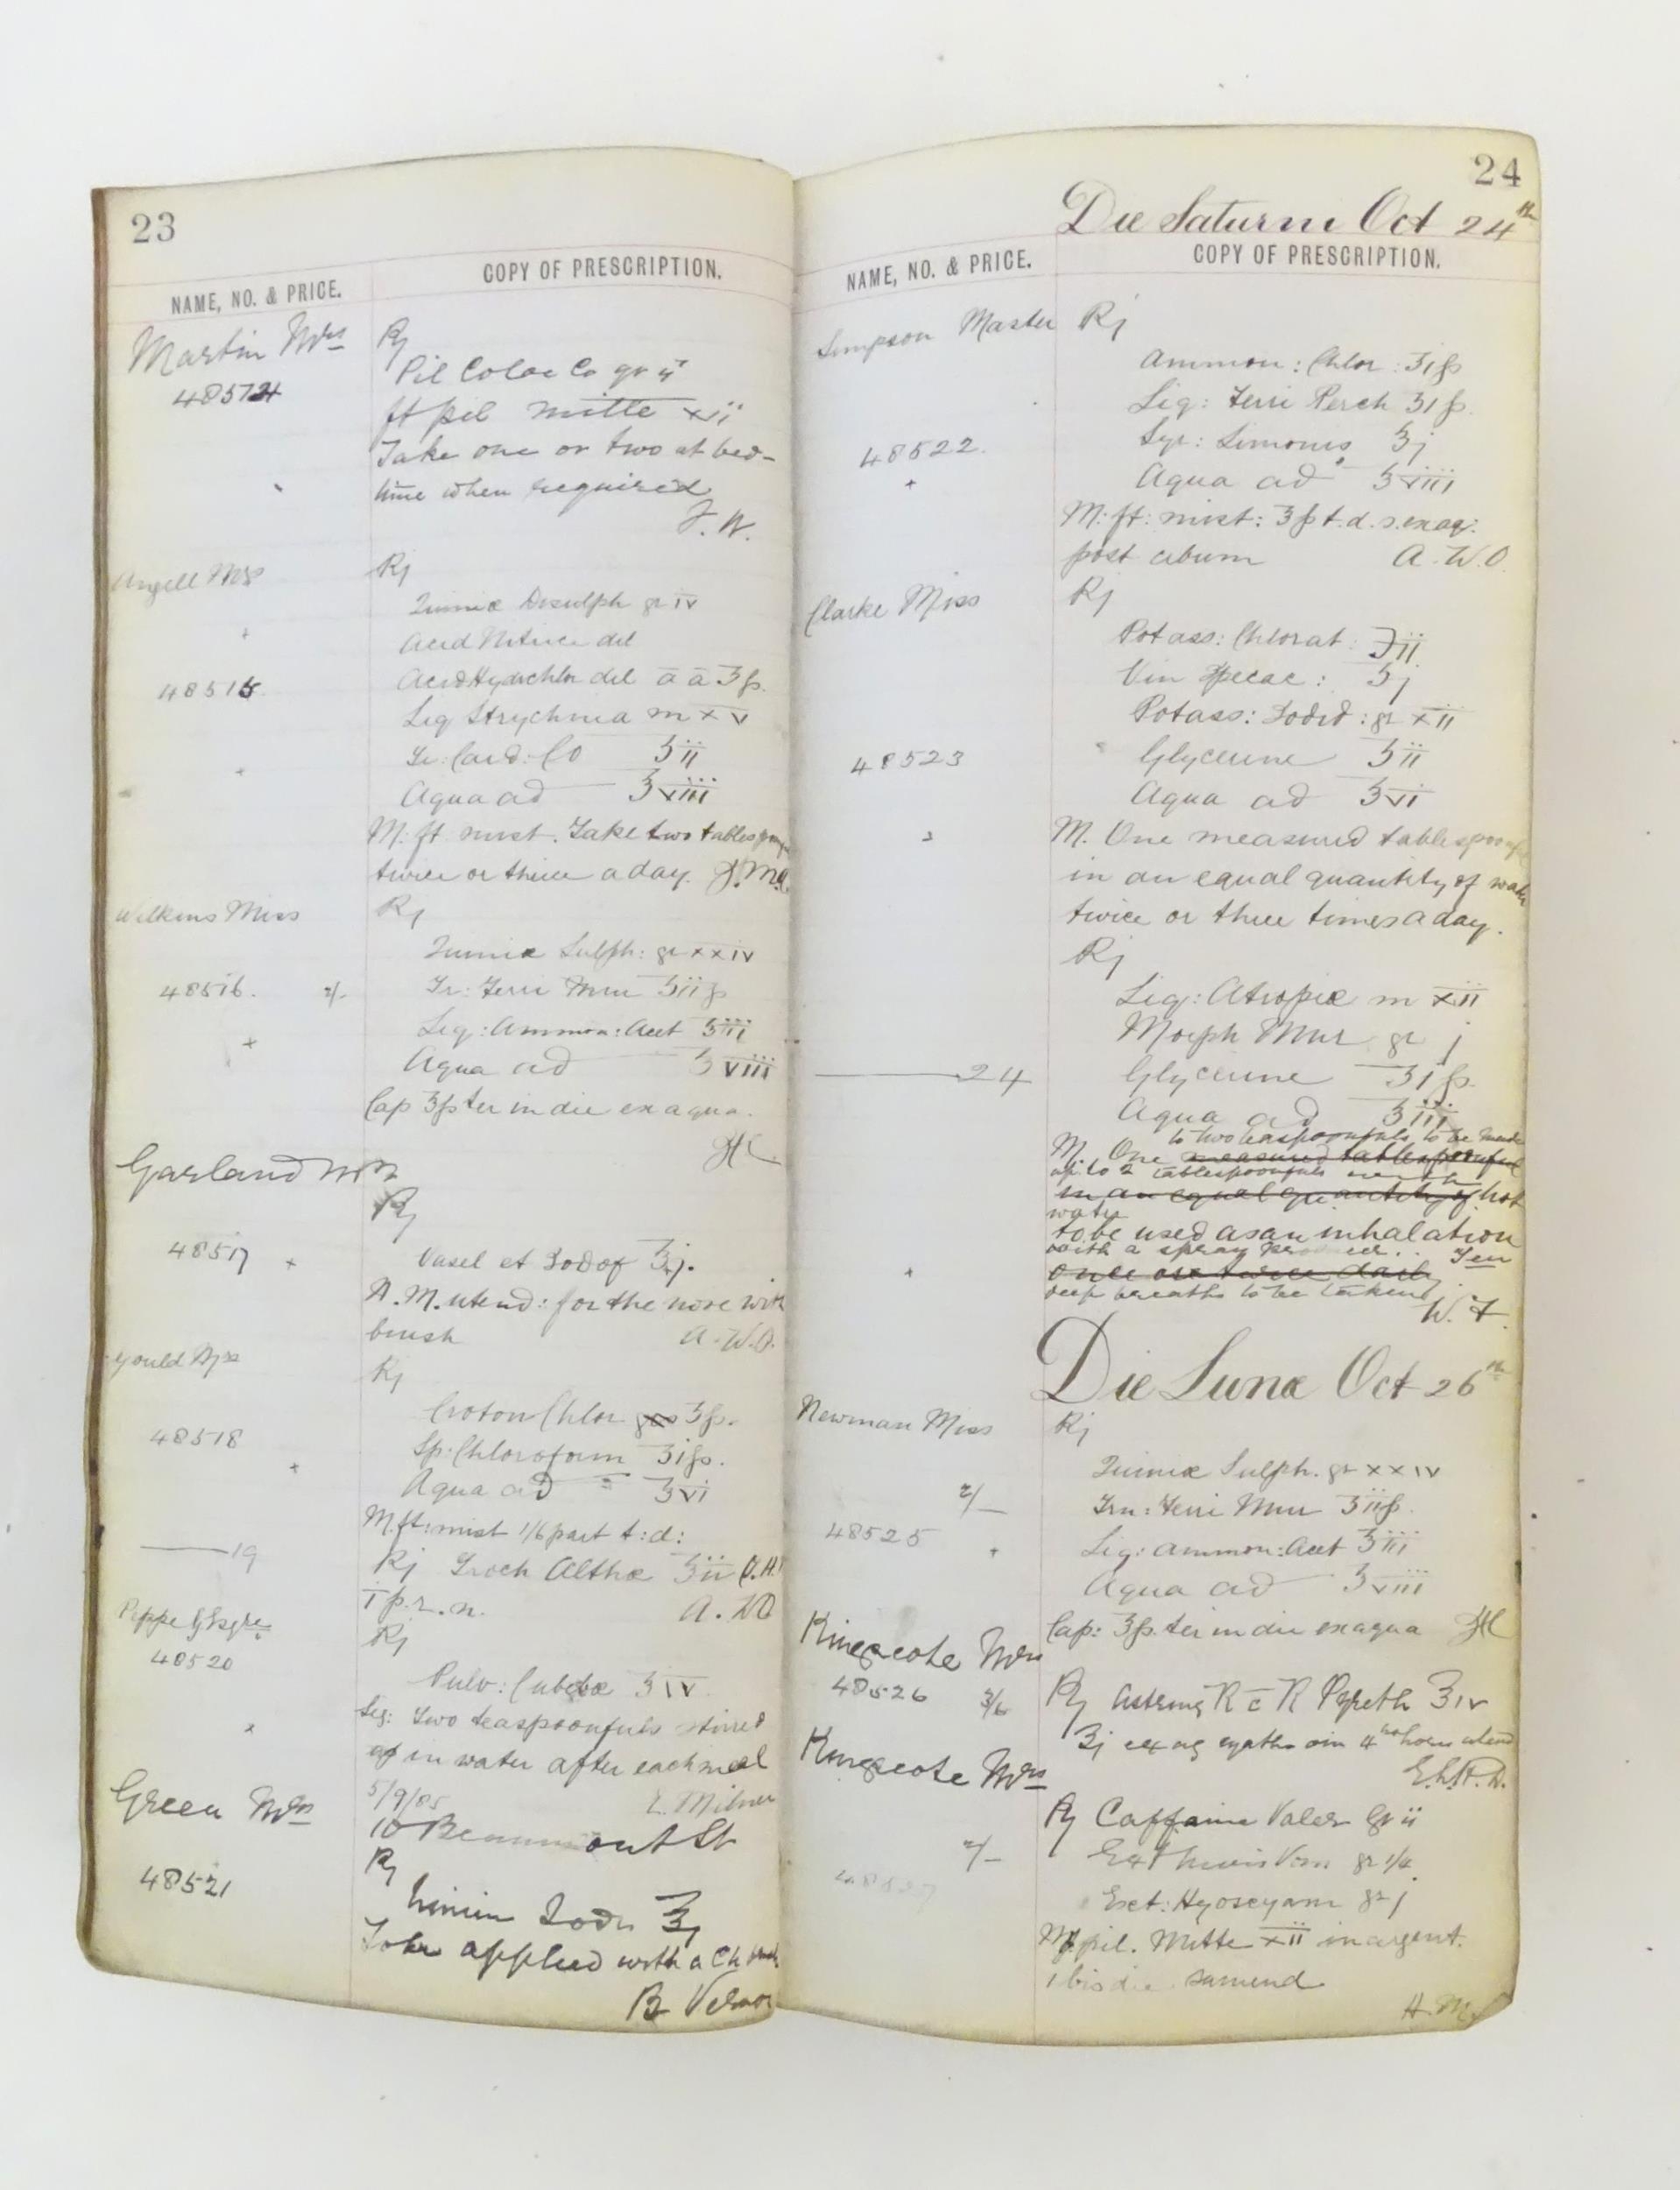 23
NAME, NO. & PRICE.
COPY OF PRESCRIPTION.
Martin Mrs
48514
Rj
Pil Coloc Co gr ij
ft pil mitte xii
Take one or two at bed-
time when required
J. W.
Angell Mrs
48515
Rj
Quiniæ Disulph gr iv
Acid Nitric dil
Acid Hydrochlor dil ā ā ʒ ß.
Liq Strychnia m x v
Tr: Card: Co ʒ ii
Aqua ad ℥ viii
M. ft mist. Take two tables
twice or thrice a day.
Wilkins Miss
48516. 2/-
Rj
Quiniæ Sulph: gr xxiv
Tr: Ferri Mur ʒ ii ß
Liq: Ammon: Acet ℥ iii
Aqua ad ℥ viii
Cap ℥ ß ter in die ex aqua.
Garland Mrs
48517
Rj
Vasel et Iodof ℥ j.
M. utend: for the nose with
brush A. W. O.
Gould Mrs
48518
Rj
Croton Chlor ʒ ß.
Sp: Chloroform ʒ i ß.
Aqua ad ℥ vi
M. ft: mist 1/6 part t: d:
19
Rj Troch Althæ ℥ ii
i p. r. n. A. W O
Pippe G Esqre
48520
Rj
Pulv: Cubebæ ℥ iv
Sig: Two teaspoonfuls stirred
in water after each meal
5/9/85 E. Milner
10 Beaumont St
Green Mrs
48521
Rj
Linim Iodi ℥ j
To be applied with a
24
Die Saturni Oct 24th
NAME, NO. & PRICE.
COPY OF PRESCRIPTION.
Simpson Master
48522.
Rj
Ammon: Chlor: ʒ i ß
Liq: Ferri Perch ʒ i ß.
Syr: Limonis ℥ j
Aqua ad ℥ viii
M: ft: mist: ℥ ß t. d. s. ex aq:
post cibum A. W. O.
Clarke Miss
48523
Rj
Potass: Chlorat: ℈ ii
Vin Ipecac: ʒ j
Potass: Iodid: gr xii
Glycerine ʒ ii
Aqua ad ℥ vi
M. One measured tablespoonful
in an equal quantity of water
twice or three times a day.
24
Rj
Liq: Atropiæ m xii
Morph Mur gr j
Glycerine ℥ i ß.
Aqua ad ℥ iii
to two teaspoonfuls to be made
M. One measured tablespoonful
up to 2 tablespoonfuls with
in an equal quantity of hot
water
to be used as an inhalation
with a spray producer. Ten
once or twice daily
deep breaths to be taken
W. F.
Die Lunæ Oct 26th
Newman Miss
2/-
48525
Rj
Quiniæ Sulph. gr xxiv
Trn: Ferri Mur ʒ ii ß.
Liq: Ammon: Acet ℥ iii
Aqua ad ℥ viii
Cap: ℥ ß. ter in die ex aqua
Kingscote Mrs
48526 3/6
Rj Astring R c̄ R Pyreth ℥ iv
ʒ j ex aq cyatho omn 4 horis utend
Kingscote Mrs
2/-
48527
Rj Caffeinæ Valer gr ii
Ext Nucis Vom gr 1/4
Ext: Hyoscyam gr j
M ft pil. Mitte xii in argent.
1 bis die sumend
H. M.